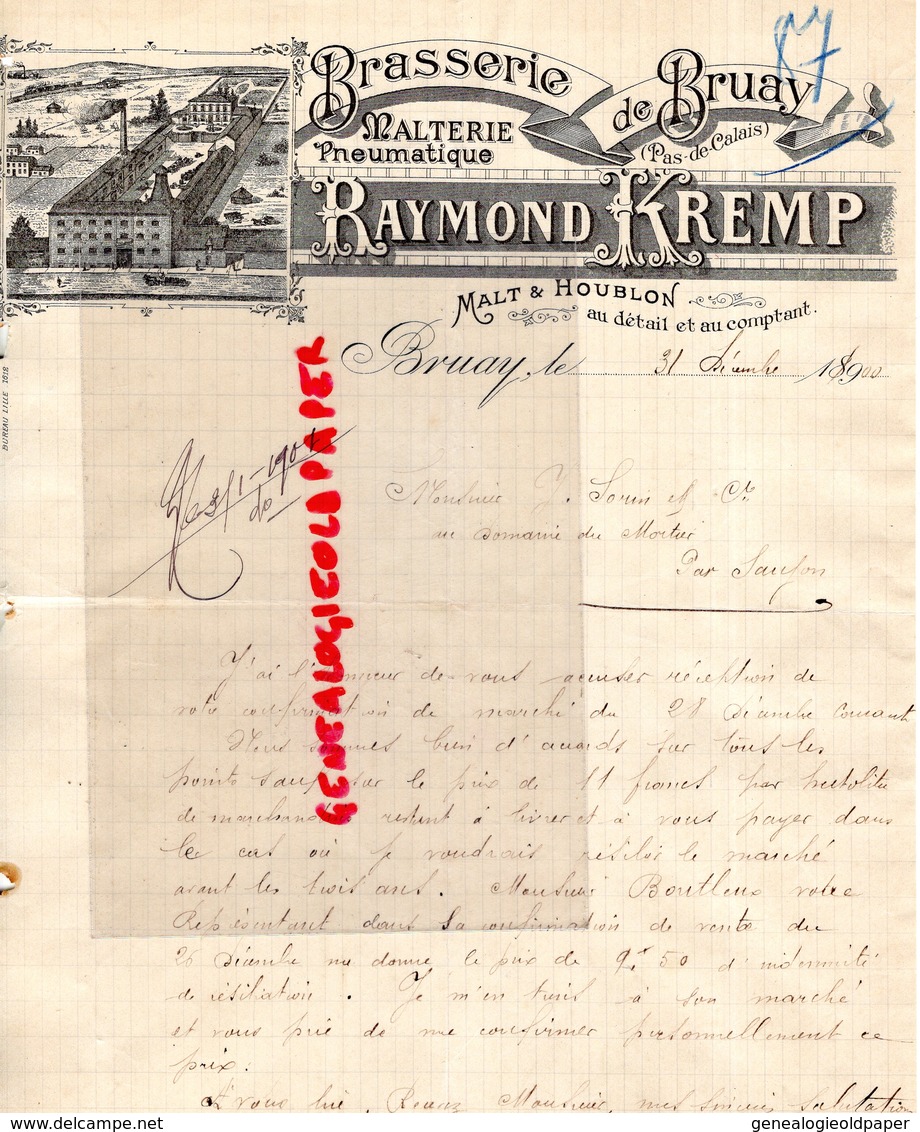 87
Brasserie de Bruay
(Pas-de-Calais)
MALTERIE
Pneumatique
RAYMOND KREMP
MALT & HOUBLON
au détail et au comptant.
Bruay, le 31 Décembre 1900
BUREAU LILLE 1612
3/1-1901
Monsieur J. Sorin & Cie
au Domaine du Mortier
Par Saujon
J'ai l'honneur de vous accuser réception de
votre confirmation de marché du 28 Décembre courant
Nous sommes bien d'accords sur tous les
points sauf sur le prix de 11 francs par hectolitre
de marchandise restant à livrer et à vous payer dans
le cas où je voudrais résilier le marché
avant les trois ans. Monsieur Boutleux votre
Représentant dans sa confirmation de vente du
26 Décembre me donne le prix de 9f 50 d'indemnité
de résiliation. Je m'en tiens à son marché
et vous prie de me confirmer personnellement ce
prix.
A vous lire, Recevez Monsieur, mes sincères salutations
GENEALOGIEOLDPAPER
delcampe.net
genealogieoldpaper